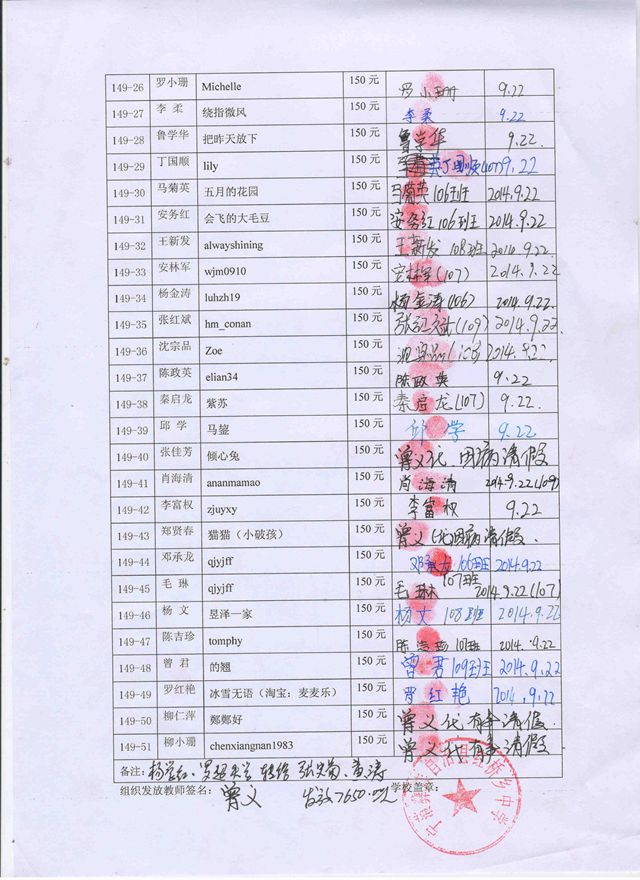 149-26 罗小珊 Michelle 150 元 罗小珊 9.22
149-27 李 柔 绕指微风 150 元 李柔 9.22
149-28 鲁学华 把昨天放下 150 元 鲁学华 9.22.
149-29 丁国顺 lily 150 元 丁国顺(107) 9.22
149-30 马菊英 五月的花园 150 元 马菊英 106班 2014.9.22
149-31 安务红 会飞的大毛豆 150 元 安务红 106班 2014.9.22
149-32 王新发 alwayshining 150 元 王新发 108班 2014.9.22
149-33 安林军 wjm0910 150 元 安林军(107) 2014.9.22
149-34 杨金涛 luhzh19 150 元 杨金涛(106) 2014.9.22.
149-35 张红斌 hm_conan 150 元 张红斌(109) 2014.9.22
149-36 沈宗品 Zoe 150 元 2014.9.22
149-37 陈政英 elian34 150 元 陈政英 9.22
149-38 秦启龙 紫苏 150 元 秦启龙(107) 9.22.
149-39 邱 学 马鋆 150 元 邱学 9.22
149-40 张佳芳 倾心兔 150 元 曾义代.因病请假
149-41 肖海清 ananmamao 150 元 肖海清 2014.9.22(109)
149-42 李富权 zjuyxy 150 元 李富权 9.22
149-43 郑贤春 猫猫（小破孩） 150 元 曾义代因病请假.
149-44 邓承龙 qjyjff 150 元 邓承龙 106班 2014.9.22
149-45 毛 琳 qjyjff 150 元 毛琳 107班 2014.9.22(107)
149-46 杨 文 昱泽一家 150 元 杨文 108班 2014.9.22
149-47 陈吉珍 tomphy 150 元 2014.9.22
149-48 曾 君 的翘 150 元 曾君 109班 2014.9.22
149-49 罗红艳 冰雪无语（淘宝：麦麦乐） 150 元 罗红艳 2014.9.22
149-50 柳仁萍 鄭鄭好 150 元 曾义代.有事请假.
149-51 柳小珊 chenxiangnan1983 150 元 曾义代有事请假
备注: 黄涛
组织发放教师签名： 曾义 发放7650.元 学校盖章：
桥乡中学